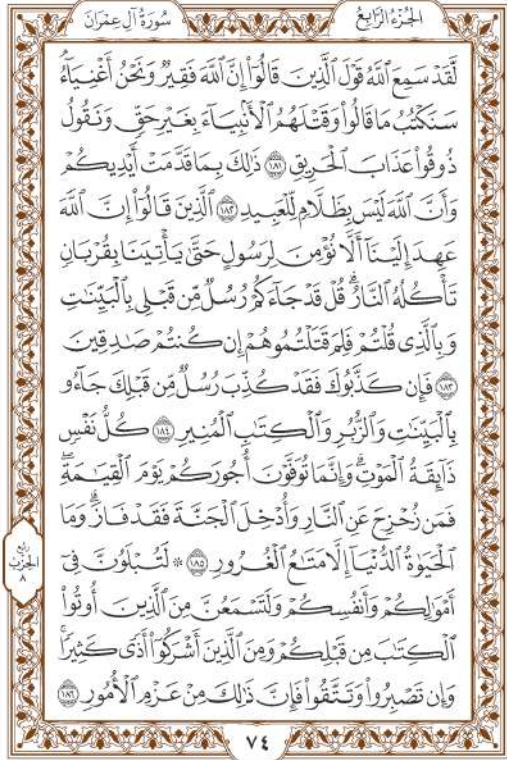 الجزء الرابع
سورة آل عمران
لَّقَدْ سَمِعَ ٱللَّهُ قَوْلَ ٱلَّذِينَ قَالُوٓا۟ إِنَّ ٱللَّهَ فَقِيرٌ وَنَحْنُ أَغْنِيَآءُ
سَنَكْتُبُ مَا قَالُوا۟ وَقَتْلَهُمُ ٱلْأَنۢبِيَآءَ بِغَيْرِ حَقٍّ وَنَقُولُ
ذُوقُوا۟ عَذَابَ ٱلْحَرِيقِ ١٨١ ذَٰلِكَ بِمَا قَدَّمَتْ أَيْدِيكُمْ
وَأَنَّ ٱللَّهَ لَيْسَ بِظَلَّامٍ لِّلْعَبِيدِ ١٨٢ ٱلَّذِينَ قَالُوٓا۟ إِنَّ ٱللَّهَ
عَهِدَ إِلَيْنَآ أَلَّا نُؤْمِنَ لِرَسُولٍ حَتَّىٰ يَأْتِيَنَا بِقُرْبَانٍ
تَأْكُلُهُ ٱلنَّارُ ۗ قُلْ قَدْ جَآءَكُمْ رُسُلٌ مِّن قَبْلِى بِٱلْبَيِّنَٰتِ
وَبِٱلَّذِى قُلْتُمْ فَلِمَ قَتَلْتُمُوهُمْ إِن كُنتُمْ صَٰدِقِينَ
١٨٣ فَإِن كَذَّبُوكَ فَقَدْ كُذِّبَ رُسُلٌ مِّن قَبْلِكَ جَآءُو
بِٱلْبَيِّنَٰتِ وَٱلزُّبُرِ وَٱلْكِتَٰبِ ٱلْمُنِيرِ ١٨٤ كُلُّ نَفْسٍ
ذَآئِقَةُ ٱلْمَوْتِ ۗ وَإِنَّمَا تُوَفَّوْنَ أُجُورَكُمْ يَوْمَ ٱلْقِيَٰمَةِ ۖ
فَمَن زُحْزِحَ عَنِ ٱلنَّارِ وَأُدْخِلَ ٱلْجَنَّةَ فَقَدْ فَازَ ۗ وَمَا
ٱلْحَيَوٰةُ ٱلدُّنْيَآ إِلَّا مَتَٰعُ ٱلْغُرُورِ ١٨٥ ۞ لَتُبْلَوُنَّ فِىٓ
أَمْوَٰلِكُمْ وَأَنفُسِكُمْ وَلَتَسْمَعُنَّ مِنَ ٱلَّذِينَ أُوتُوا۟
ٱلْكِتَٰبَ مِن قَبْلِكُمْ وَمِنَ ٱلَّذِينَ أَشْرَكُوٓا۟ أَذًى كَثِيرًا ۚ
وَإِن تَصْبِرُوا۟ وَتَتَّقُوا۟ فَإِنَّ ذَٰلِكَ مِنْ عَزْمِ ٱلْأُمُورِ ١٨٦
ربع
الحزب
٨
٧٤